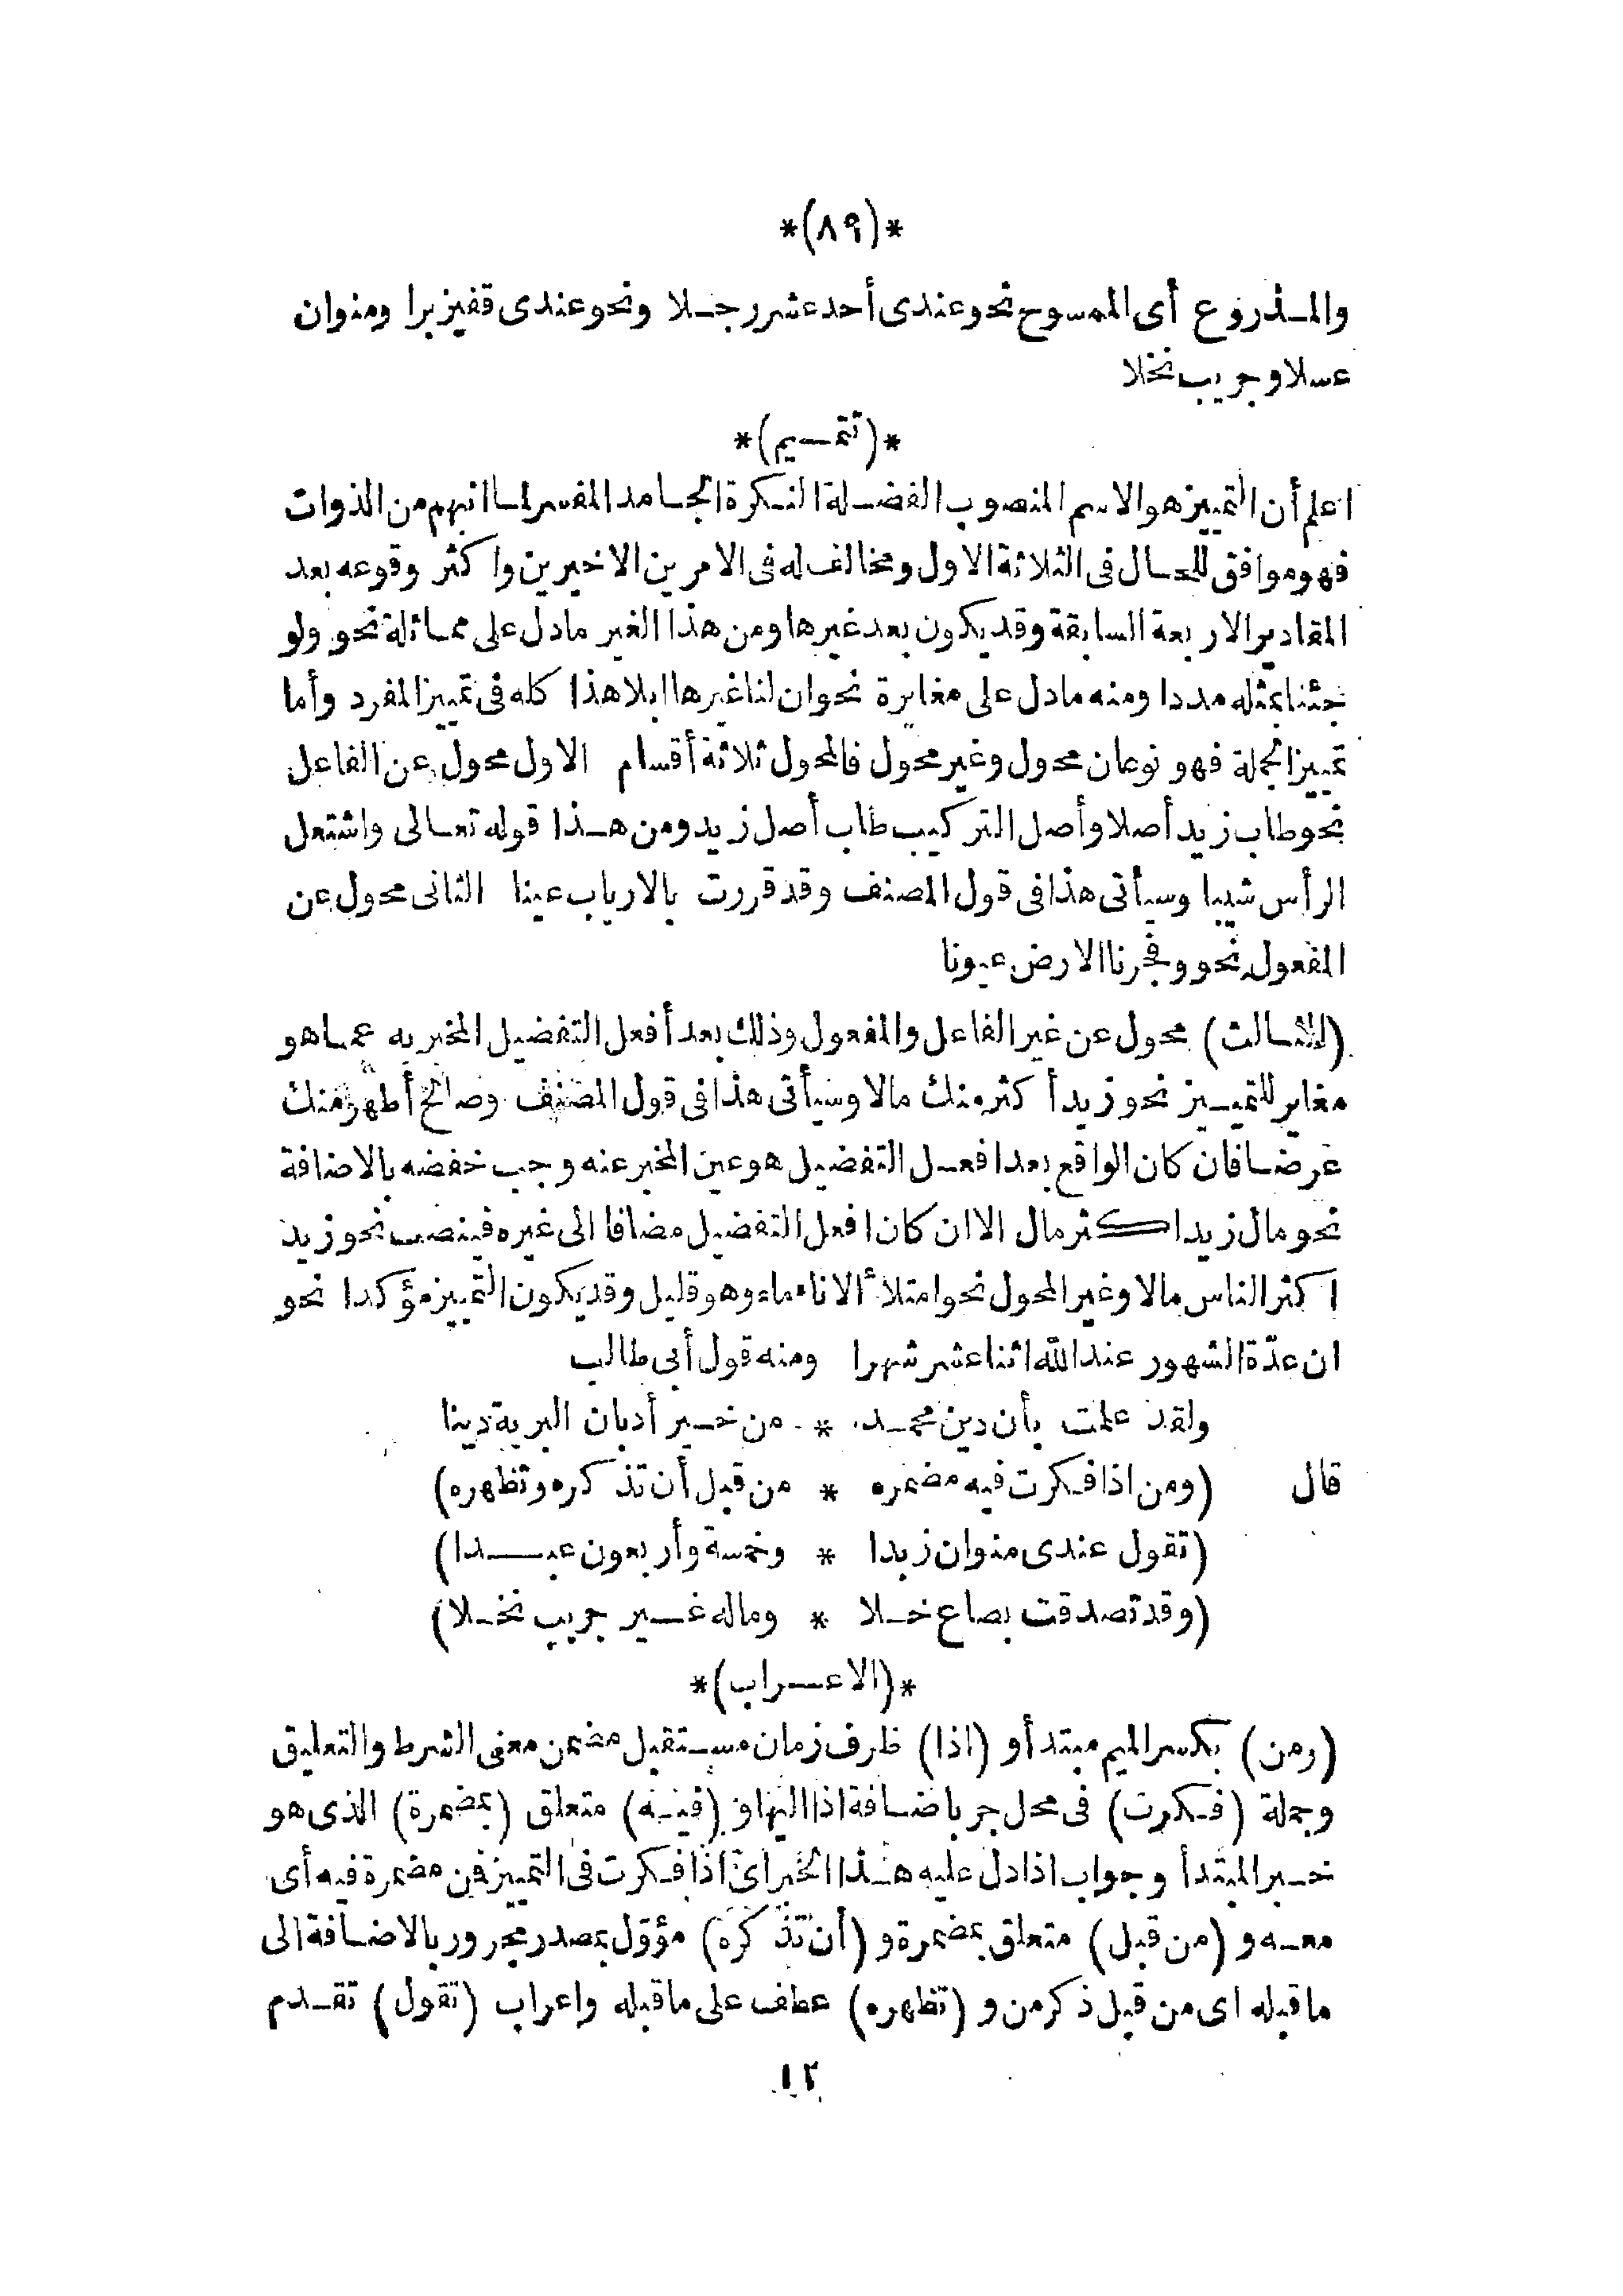 *(٨٩)*
والمذروع أى الممسوح نحو عندى أحد عشر رجلا ونحو عندى قفيز برا ومنوان
عسلا وجريب نخلا
*(تتميم)*
اعلم أن التمييز هو الاسم المنصوب الفضلة النكرة الجامد المفسر لما انبهم من الذوات
فهو موافق للحال فى الثلاثة الاول ومخالف له فى الامرين الاخيرين واكثر وقوعه بعد
المقادير الاربعة السابقة وقد يكون بعد غيرها ومن هذا الغير مادل على مماثلة نحو ولو
جئنا بمثله مددا ومنه مادل على مغايرة نحوان لنا غيرها ابلا هذا كله فى تمييز المفرد وأما
تمييز الجملة فهو نوعان محول وغير محول فالمحول ثلاثة أقسام الاول محول عن الفاعل
نحو طاب زيد أصلا وأصل التركيب طاب أصل زيد ومن هذا قوله تعالى واشتعل
الرأس شيبا وسيأتى هذا فى قول المصنف وقد قررت بالارباب عينا الثانى محول عن
المفعول نحو وفجرنا الارض عيونا
(الثالث) محول عن غير الفاعل والمفعول وذلك بعد أفعل التفضيل المخبر به عما هو
مغاير للتمييز نحو زيد أكثر منك مالا وسيأتى هذا فى قول المصنف وصالح أطهر منك
عرضا فان كان الواقع بعد افعل التفضيل هو عين المخبر عنه وجب خفضه بالاضافة
نحو مال زيد اكثر مال الا ان كان افعل التفضيل مضافا الى غيره فينصب نحو زيد
اكثر الناس مالا وغير المحول نحو امتلأ الاناء ماء وهو قليل وقد يكون التمييز مؤكدا نحو
ان عدّة الشهور عند الله اثنا عشر شهرا ومنه قول أبى طالب
ولقد علمت بأن دين محمد * من خير أديان البرية دينا
قال (ومن اذا فكرت فيه مضمره * من قبل أن تذكره وتظهره)
(تقول عندى منوان زبدا * وخمسة وأربعون عبدا)
(وقد تصدقت بصاع خلا * وماله غير جريب نخلا)
*(الاعراب)*
(ومن) بكسر الميم مبتدأ و (اذا) ظرف زمان مستقبل مضمن معنى الشرط والتعليق
وجملة (فكرت) فى محل جر باضافة اذا اليها و (فيه) متعلق (بمضمرة) الذى هو
خبر المبتدأ وجواب اذا دل عليه هذا الخبر اى اذا فكرت فى التمييز فمن مضمرة فيه أى
معه و (من قبل) متعلق بمضمرة و (أن تذكره) مؤوّل بمصدر مجرور بالاضافة الى
ما قبله اى من قبل ذكر من و (تظهره) عطف على ما قبله واعراب (تقول) تقدم
١٢